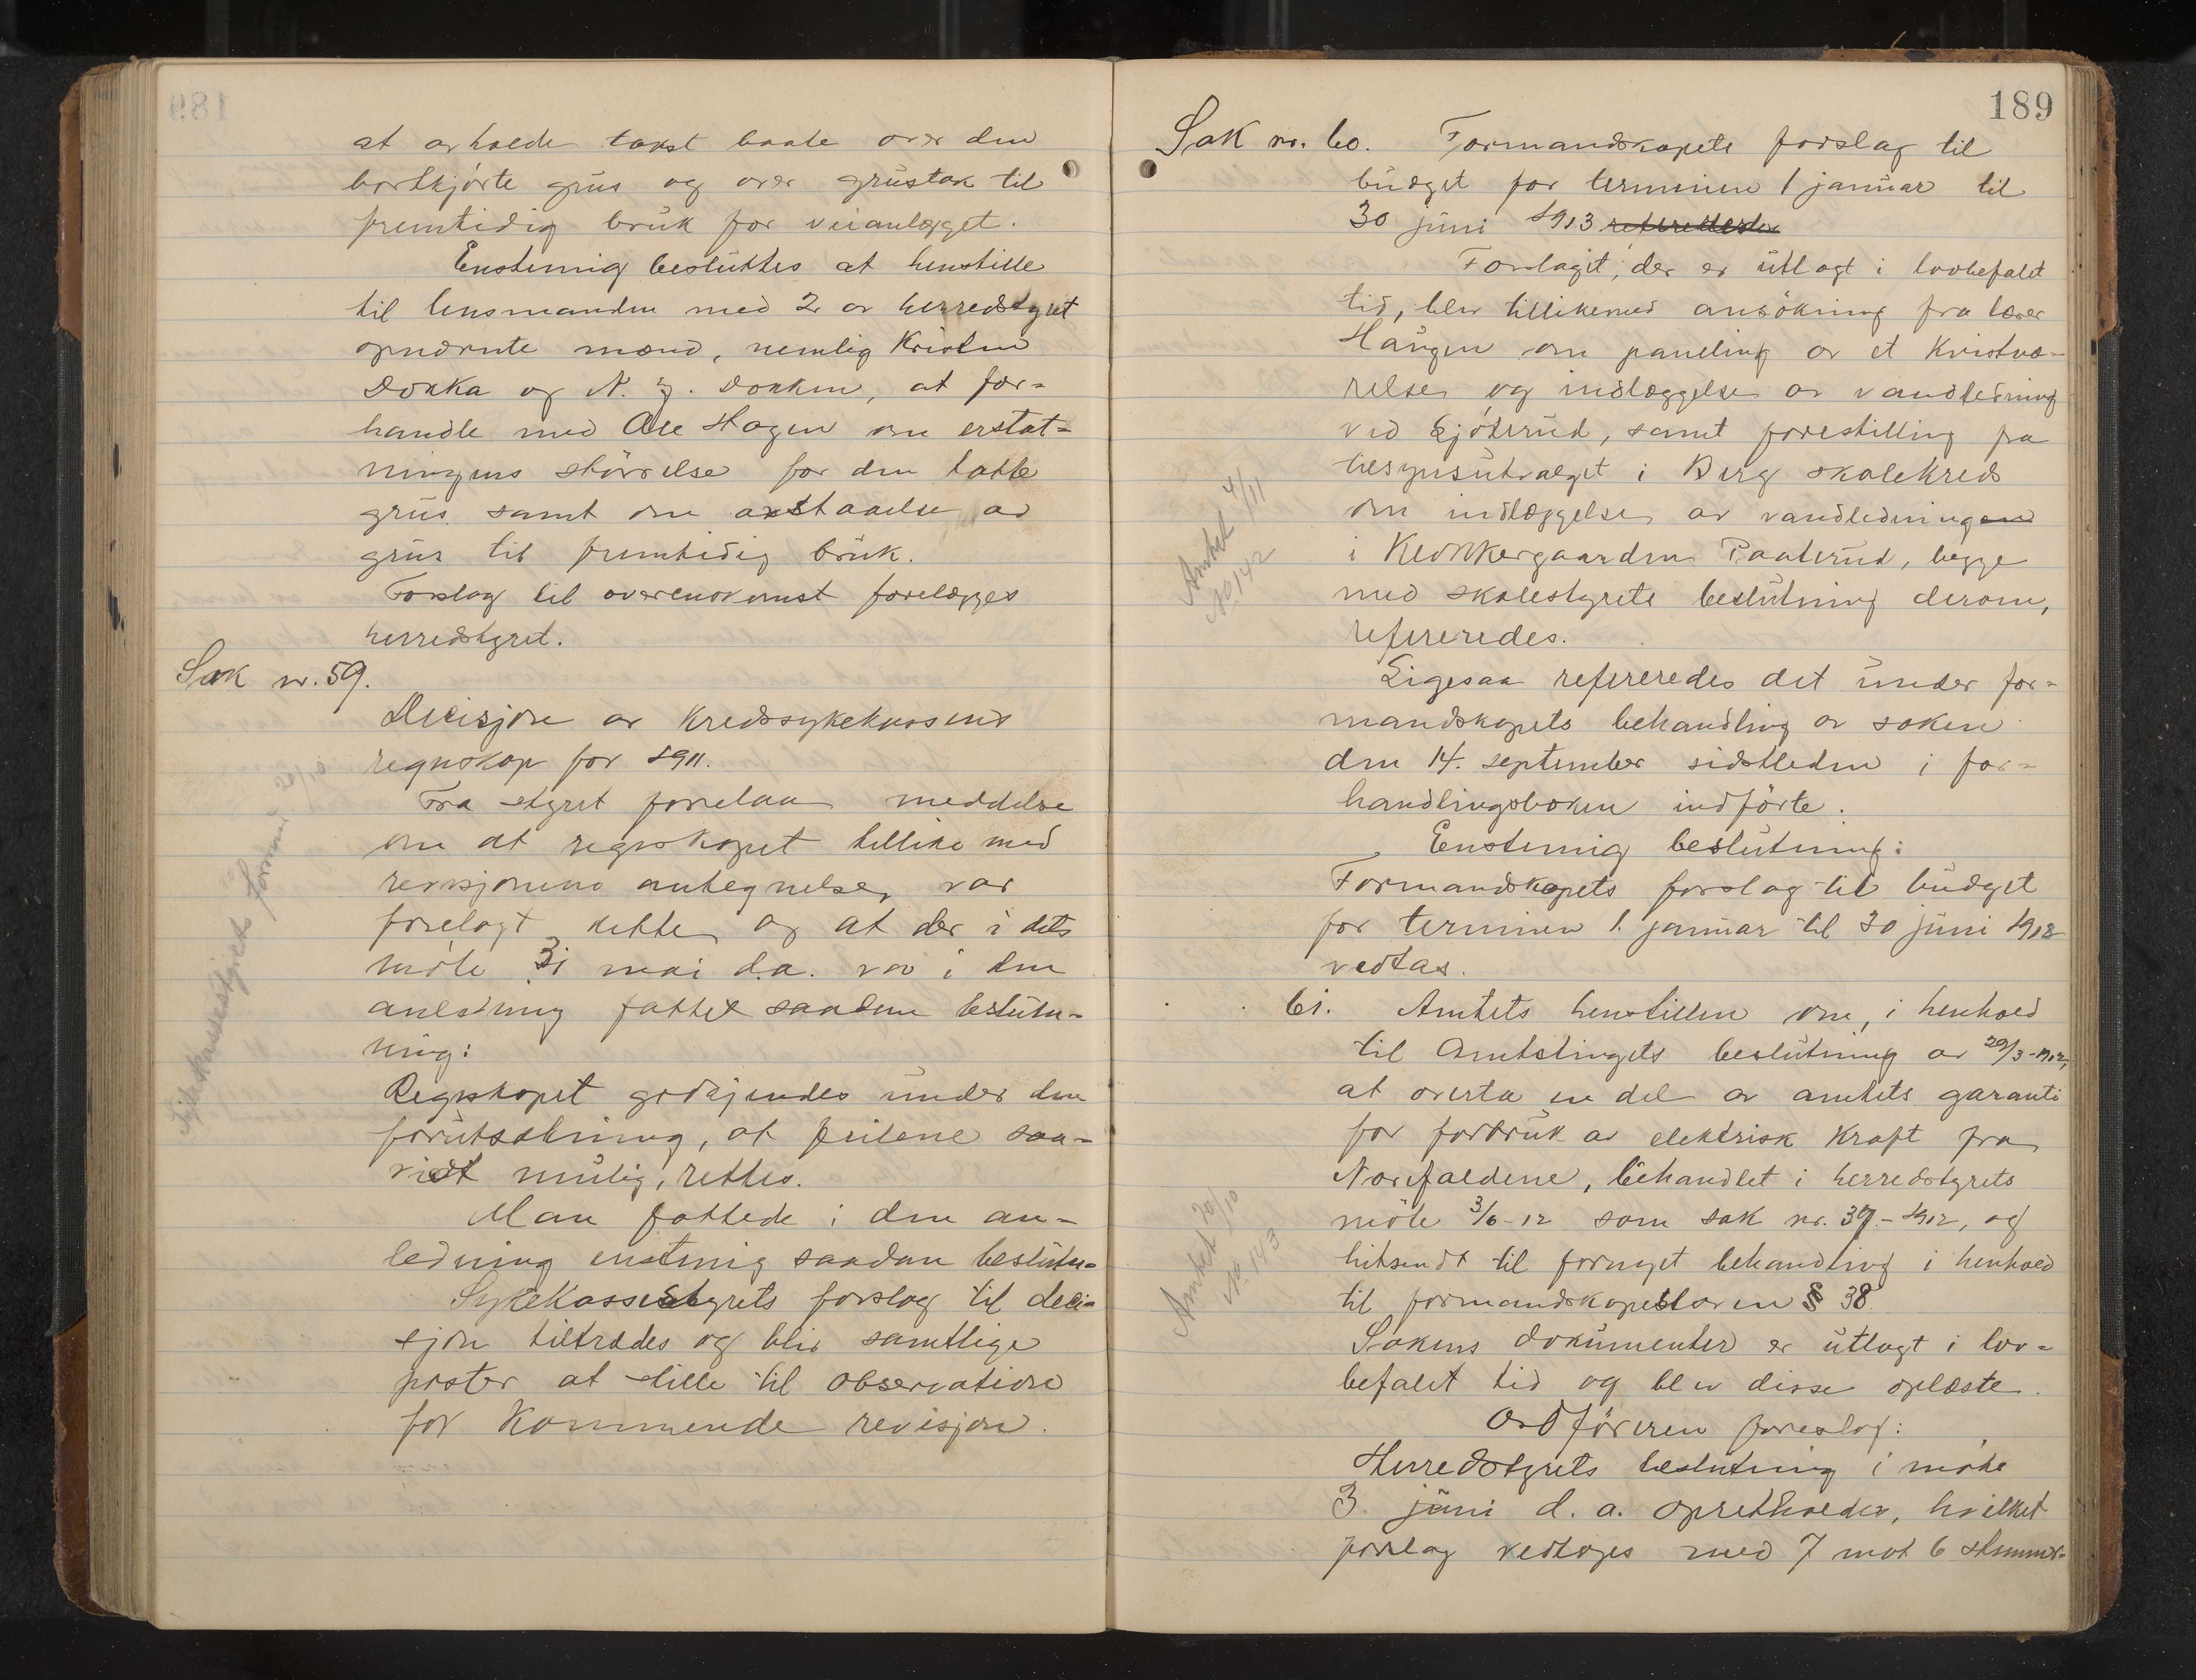 at avholde takst baade over den
bortkjörte grus og over grustak til
fremtidig bruk for veianlægget.
Enstemig besluttes at henstille
til lensmanden med 2 av herredstyret
opnævnte mænd, nemlig Kristen
Dokka og N. J. Dokken, at for-
handle med Ole Hagen om erstat-
ningens störrelse for den tatte
grus samt om avstaaelse av
grus til fremtidig bruk.
Forslag til overenskomst forelægges
herredstyret.
Sak nr. 59.
Decisjon av kredssykekassens
regnskap for 1911.
Fra styret forelaa meddelse
om at regnskapet tillike med
revisjonens antegnelser var
forelagt dette og at der i dets
möte 31 mai d.a. var i den
anledning fattet saadan beslut-
ning:
Regnskapet godkjendes under den
forutsætning, at feilene saa-
vidt mulig, rettes.
Man fattede i den an-
ledning enstemig saadan beslutn-
Sykekassestyrets forslag til deci-
sjon tiltrædes og blir samtlige
poster at stille til observation
for kommende revisjon.
189
Sak nr. 60. Formandskapets forslag til
budget for terminen 1 januar til
30 juni 1913
Forslaget, der er utlagt i lovbefalt
tid, blev tillikemed ansökning fra lærer
Haugen om paneling av et kvistvæ-
relse og indlæggelse av vandledning
ved Sjöterud, samt forestilling fra
tilsynsutvalget i Berg skolekreds
om indlæggelse av vandledningen
i Klokkergaarden Paaterud, begge
med skolestyrets beslutning derom,
refereredes.
Ligesaa refereredes det under for-
mandskapets behandling av saken
den 14. september sidstleden i for-
handlingsboken indförte.
Enstemig beslutning:
Formandskapets forslag til budget
for terminen 1. januar til 30 juni 1913
vedtas.
Amtet 4/11
No 142
61. Amtets henstillen om, i henhold
til Amtstingets beslutning av 29/3-1912,
at overta en del av amtets garanti
for forbruk av elektrisk kraft fra
Norefaldene, behandlet i herredstyrets
möte 3/6-12 som sak nr. 37-1912, og
hitsendt til fornyet behandling i henhold
til formandskapsloven § 38.
Sakens dokumenter er utlagt i lov-
befalet tid og blev disse oplæste.
Ordföreren foreslog:
Herredstyrets beslutning i möte
3 juni d. a. opretholdes, hvilket
forslag vedtoges med 7 mot 6 stemmer-
Amtet 20/10
No 143